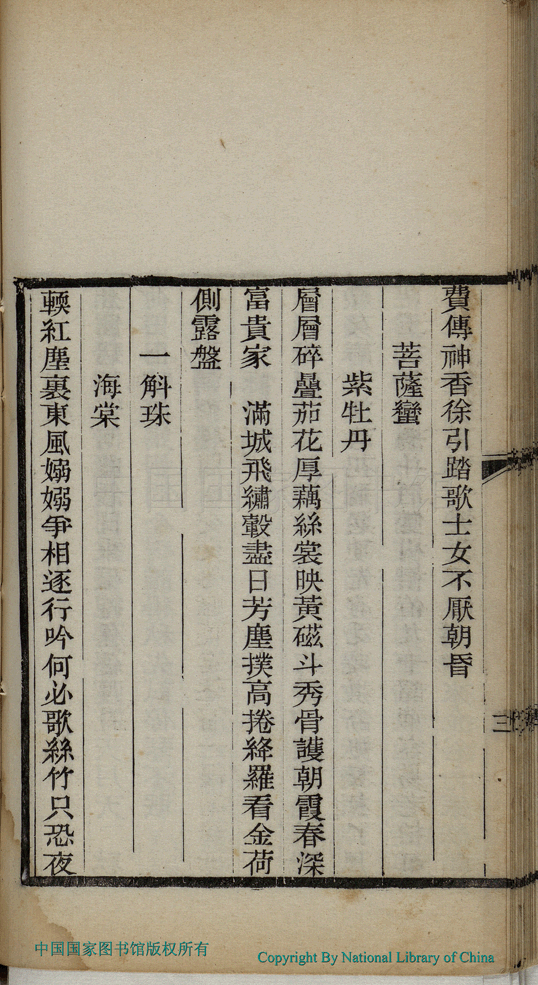 費傳神香徐引踏歌士女不厭朝昏
菩薩蠻
紫牡丹
層層碎疊茄花厚藕絲裳映黃磁斗秀骨護朝霞春深
富貴家　滿城飛繡轂盡日芳塵撲高捲絳羅看金荷
側露盤
一斛珠
海棠
輭紅塵裏東風嫋嫋爭相逐行吟何必歌絲竹只恐夜
三
中国国家图书馆版权所有
Copyright By National Library of China